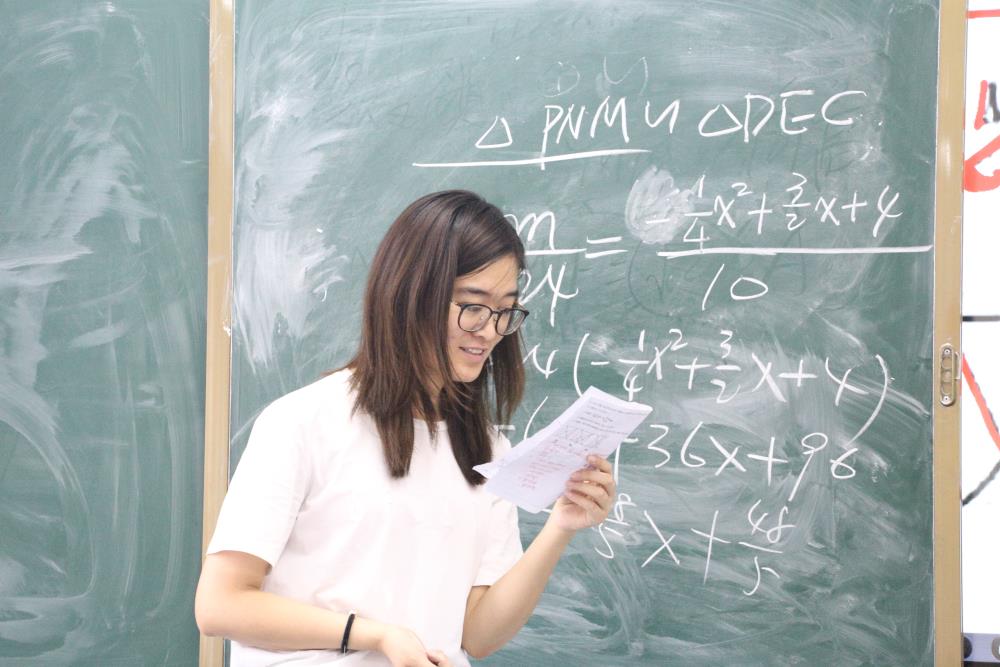 △PNM ∽ △DEC
m/24 = (-1/4x²+3/2x+4)/10
4(-1/4x²+3/2x+4)
+36x+96
x+48/5